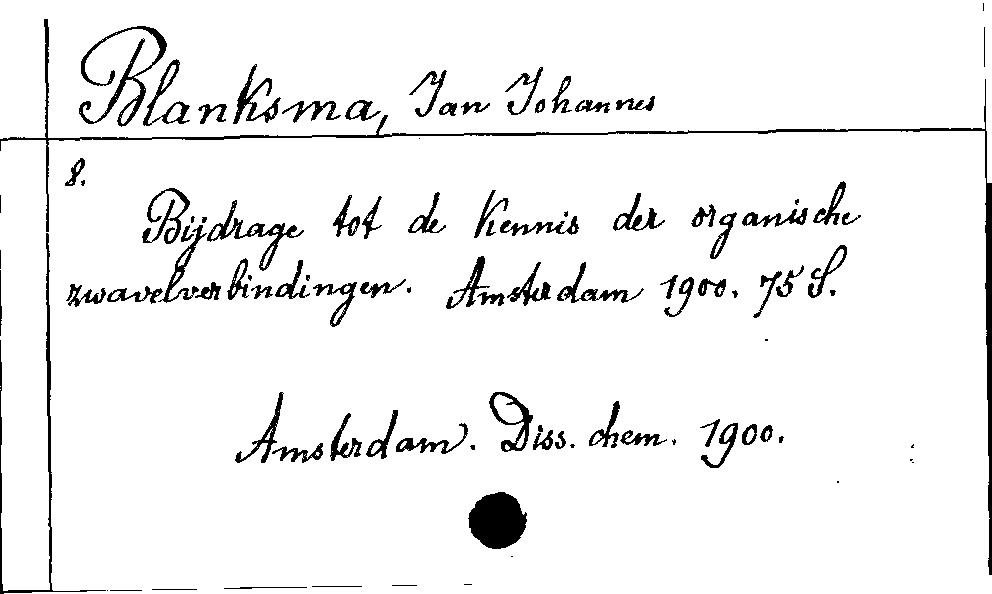 Blanksma, Jan Johannes
8.
Bijdrage tot de Kennis der organische
zwavelverbindingen. Amsterdam 1900. 75 S.
Amsterdam. Diss. chem. 1900.